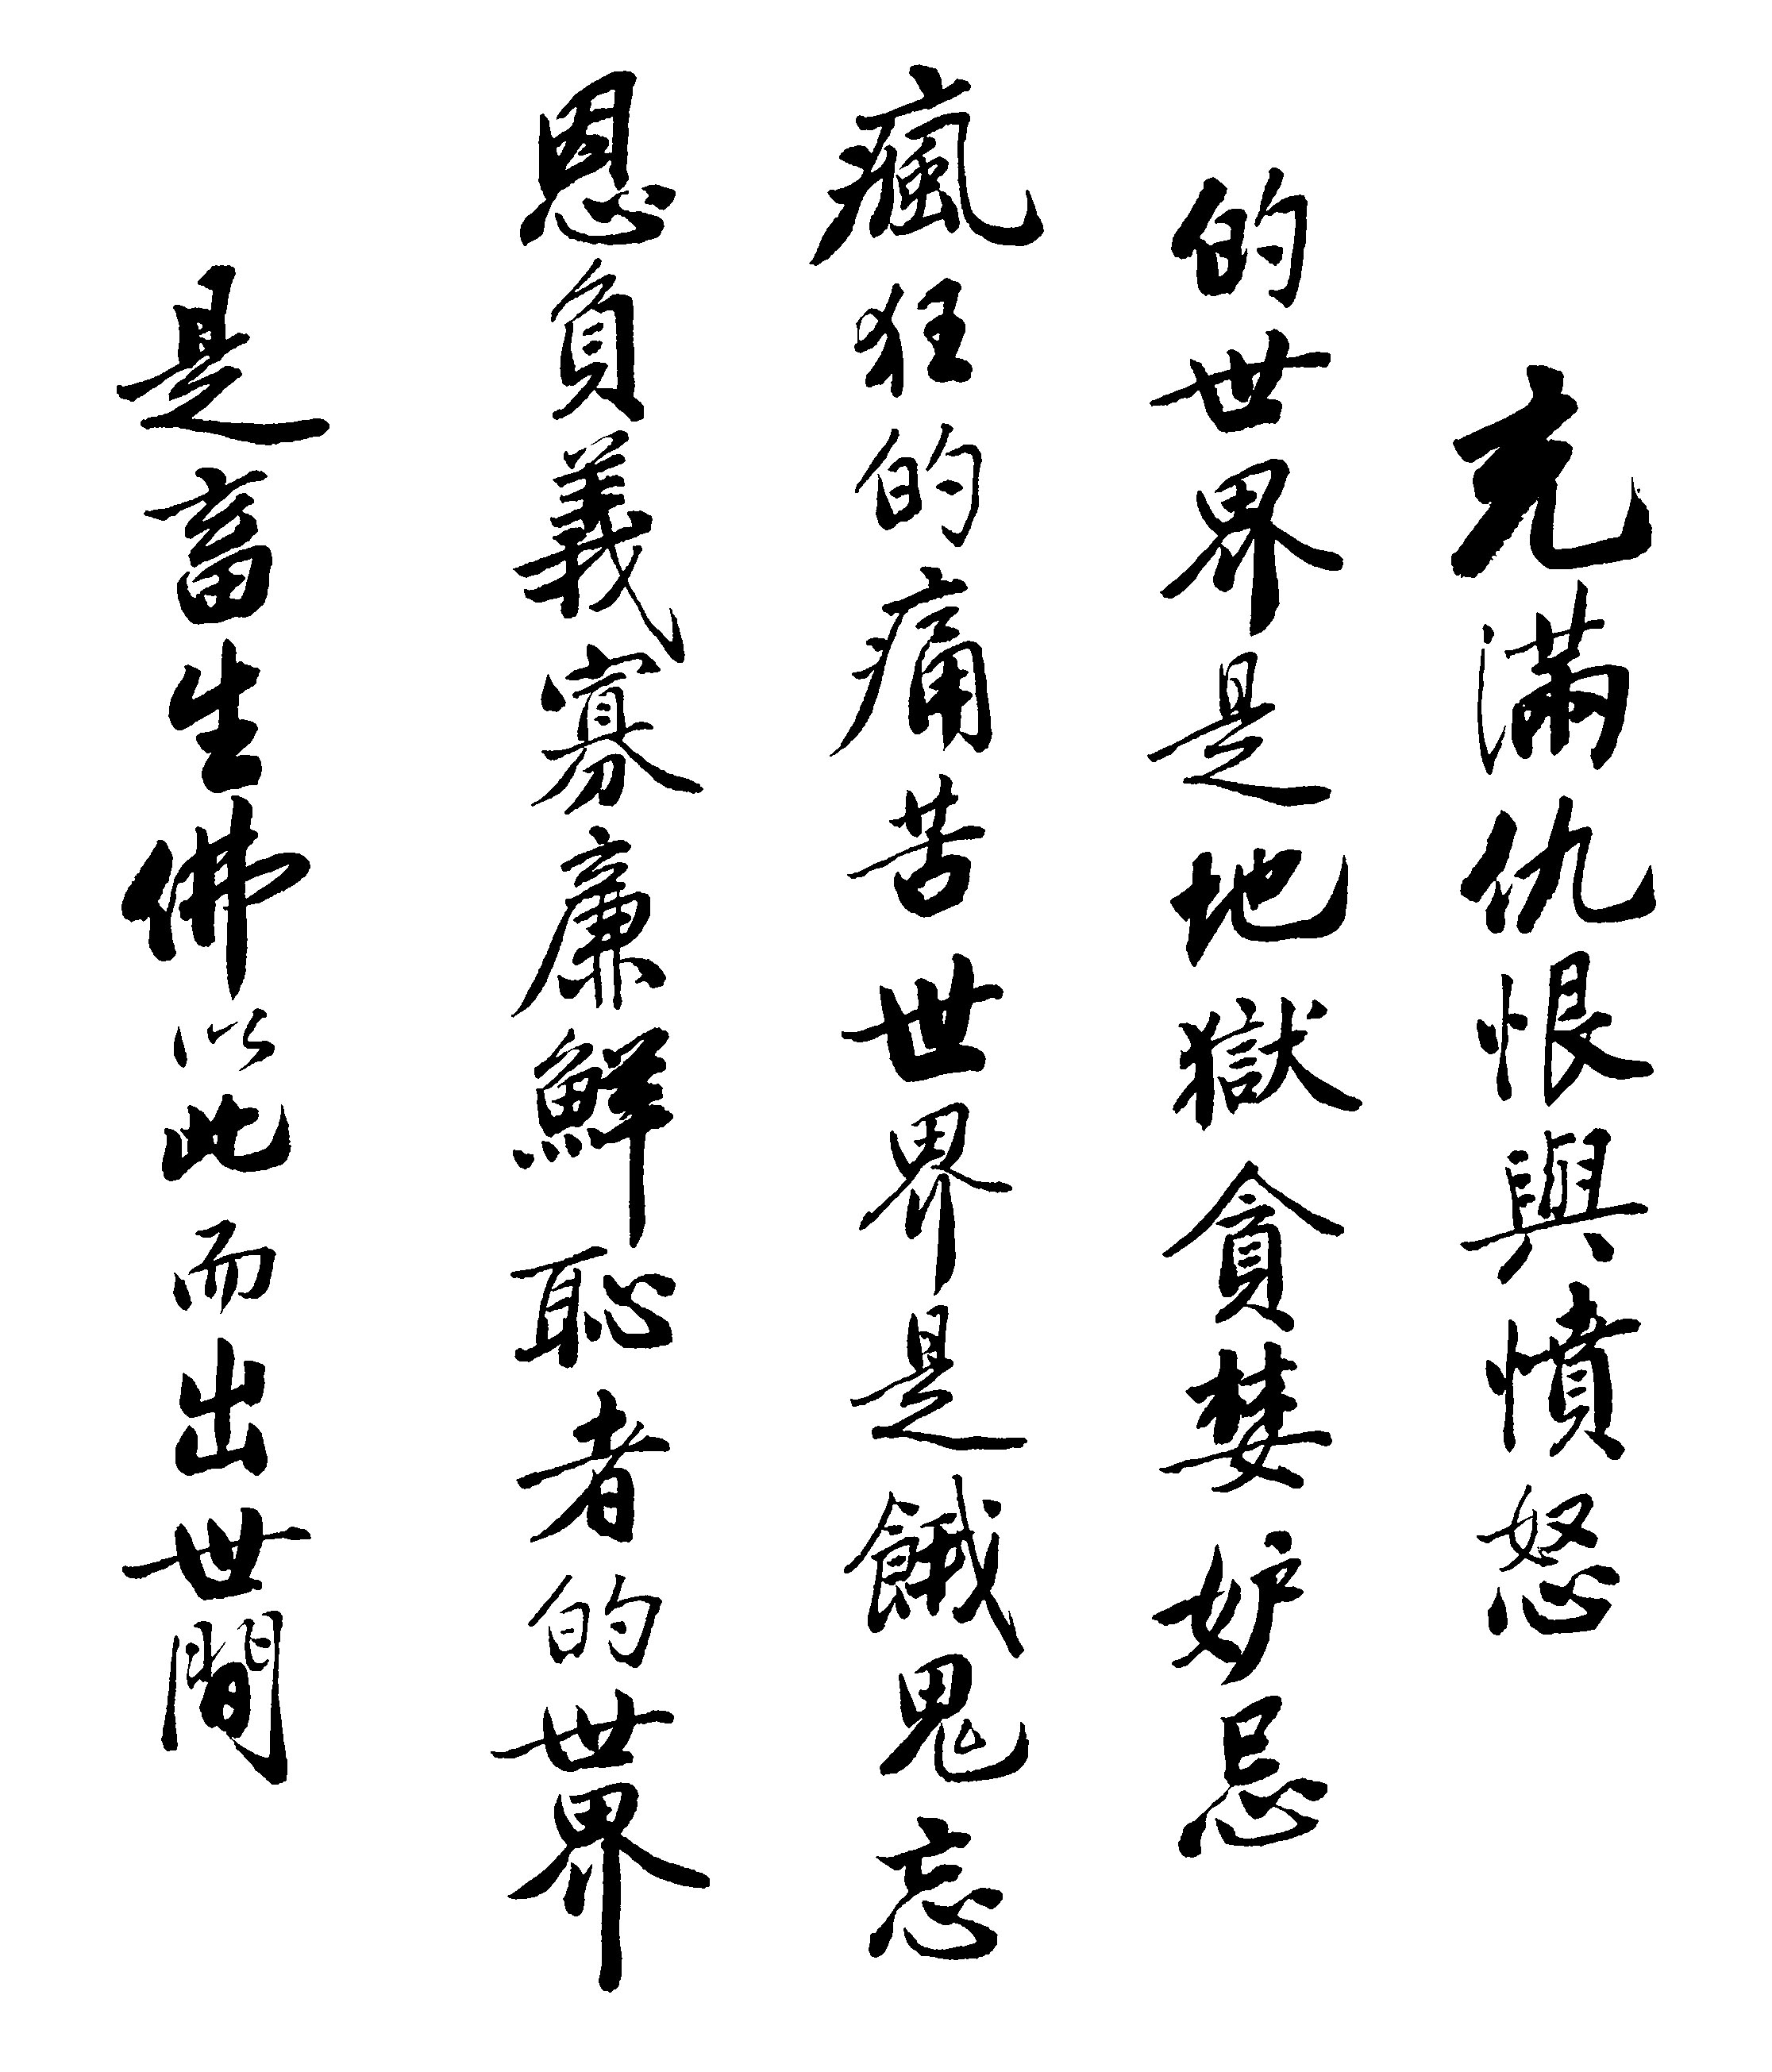 充滿仇恨與憤怒
的世界是地獄貪婪妒忌
瘋狂的痛苦世界是餓鬼忘
恩負義寡廉鮮恥者的世界
是畜生佛以此而出世間